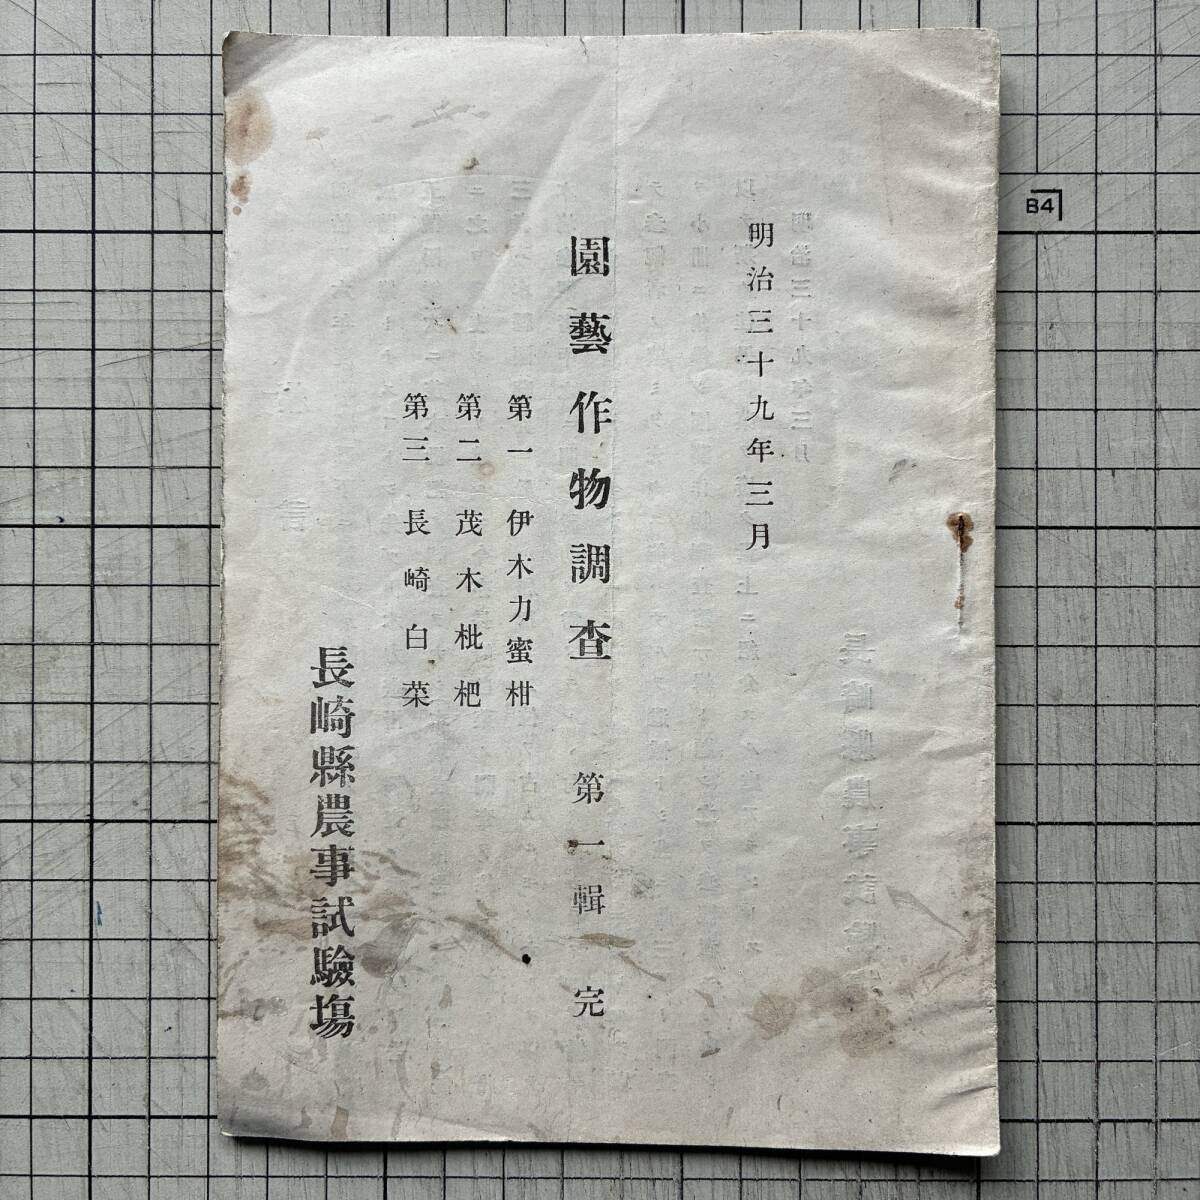 明治三十九年三月
園藝作物調査 第一輯 完
第一 伊木力蜜柑
第二 茂木枇杷
第三 長崎白菜
長崎縣農事試驗場
B4